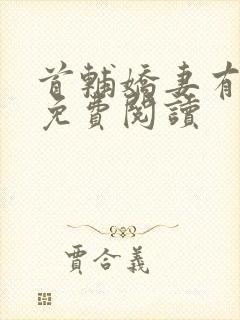 首輔嬌妻有
免費閱讀
賈合義